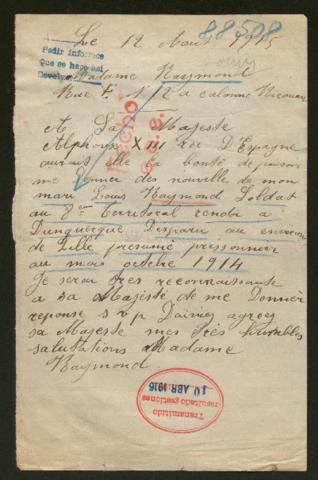 88508
Le 12 Aout 1915
Pedir informes
Que se haga asi
Madame Raymond
Rue F. N 12 a calonne Ricouart
A Sa Majeste
Alphonse XIII Roi D'Espagne
aurait elle la bonté de
me donner des nouvelle de mon
mari Louis Raymond Soldat
au 8eme territorial rendu a
Dunquerque Disparu au environ
de Lille presumé prissonnier
au mois octobre 1914
Je serai tres reconnaissante
a sa Majesté de me Donnér
reponse s v p Daignez agreez
sa Majeste mes très humbles
salutations Madame
Raymond
Transmitido
resultado gestiones
10 ABR 1916